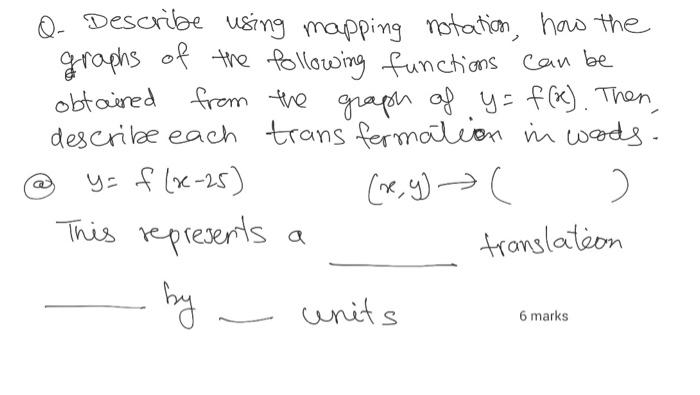 Q- Describe using mapping notation, how the
graphs of the following functions can be
obtained from the graph of y = f(x). Then,
describe each transformation in words.
(a) y = f(x-25) (x,y) → ( )
This represents a ______ translation
______ by ___ units
6 marks